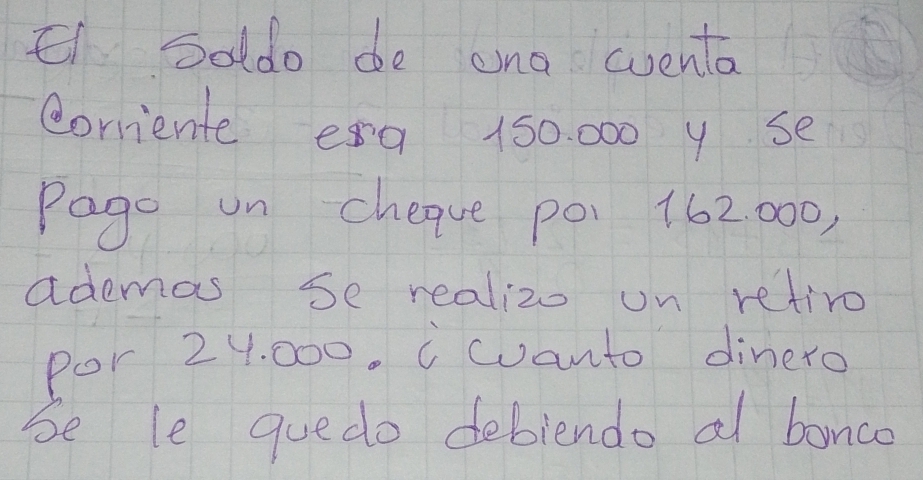 El Saldo de una cuenta
Corriente era 150.000 y se
Pago un cheque por 162.000,
ademas se realizo un retiro
por 24.000. ¿ Cuanto dinero
Se le quedo debiendo al banco